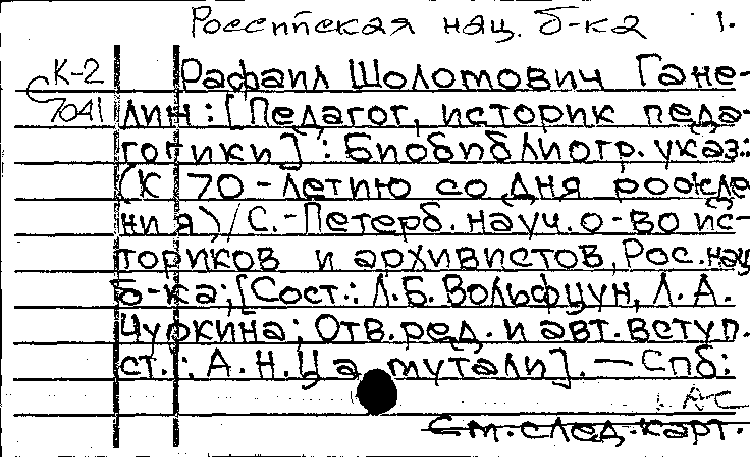 Российская нац. б-ка 1.
К-2 Рафаил Шоломович Гане-
С 7041 лин: [Педагог, историк педа-
гогики]: Биобиблиогр. указ.:
(К 70-летию со дня рожде
ния) / С.-Петерб. науч. о-во ис-
ториков и архивистов, Рос. нац
б-ка; [Сост.: Л.Б. Вольфцун, Л.А.
Чуркина; Отв. ред. и авт. вступ.
ст.: А.Н. Цамутали]. — Спб:
См. след. карт.